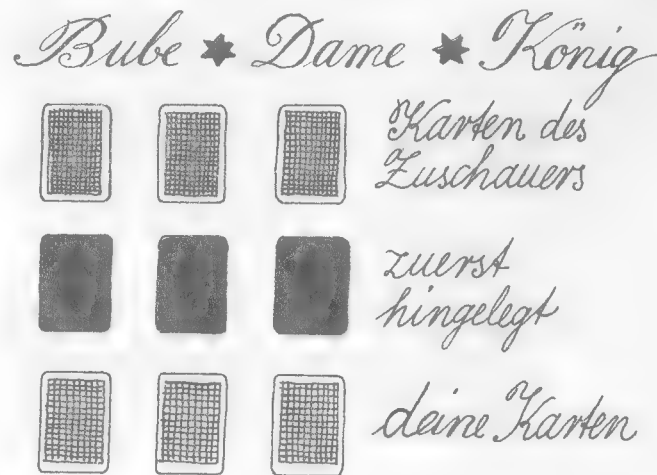 Bube ★ Dame ★ König
Karten des
Zuschauers
zuerst
hingelegt
deine Karten